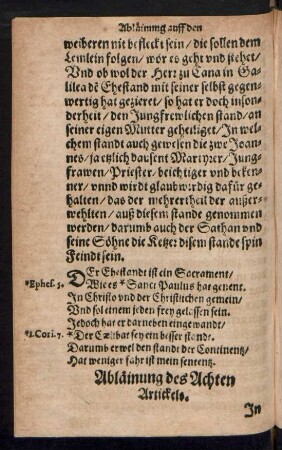 Abläinung auff den
weiberen nit befleckt sein / die sollen dem
Lemlein folgen / wor es geht vnd stehet /
Vnd ob wol der Herr zu Cana in Ga-
lilea dē Ehestand mit seiner selbst gegen-
wertig hat gezieret / so hat er doch inson-
derheit / den Jungfrewlichen stand / an
seiner eigen Mutter geheiliget / In wel-
chen standt auch gewesen die zwe Joan-
nes / ja etzlich dausent Martyrer / Jung-
frawen / Priester / beichtiger vnd beken-
ner / vnnd wirdt glaubwirdig dafür ge-
halten / das der mehrertheil der außer-
wehlten / auß diesem stande genommen
werden / darumb auch der Sathan vnd
seine Söhne die Ketzer disem stande spin
Feindt sein.
*Ephes. 5. DEr Ehestandt ist ein Sacrament /
Wie es * Sanct Paulus hat genent.
In Christo vnd der Christlichen gemein /
Vnd sol einem jeden frey gelassen sein.
Jedoch hat er darneben eingewandt /
*1. Cori. 7. * Der Cælibat sey ein besser standt.
Darumb erwel den standt der Continentz /
Hat weniger fahr ist mein sententz.
Abläinung des Achten
Artickels.
In